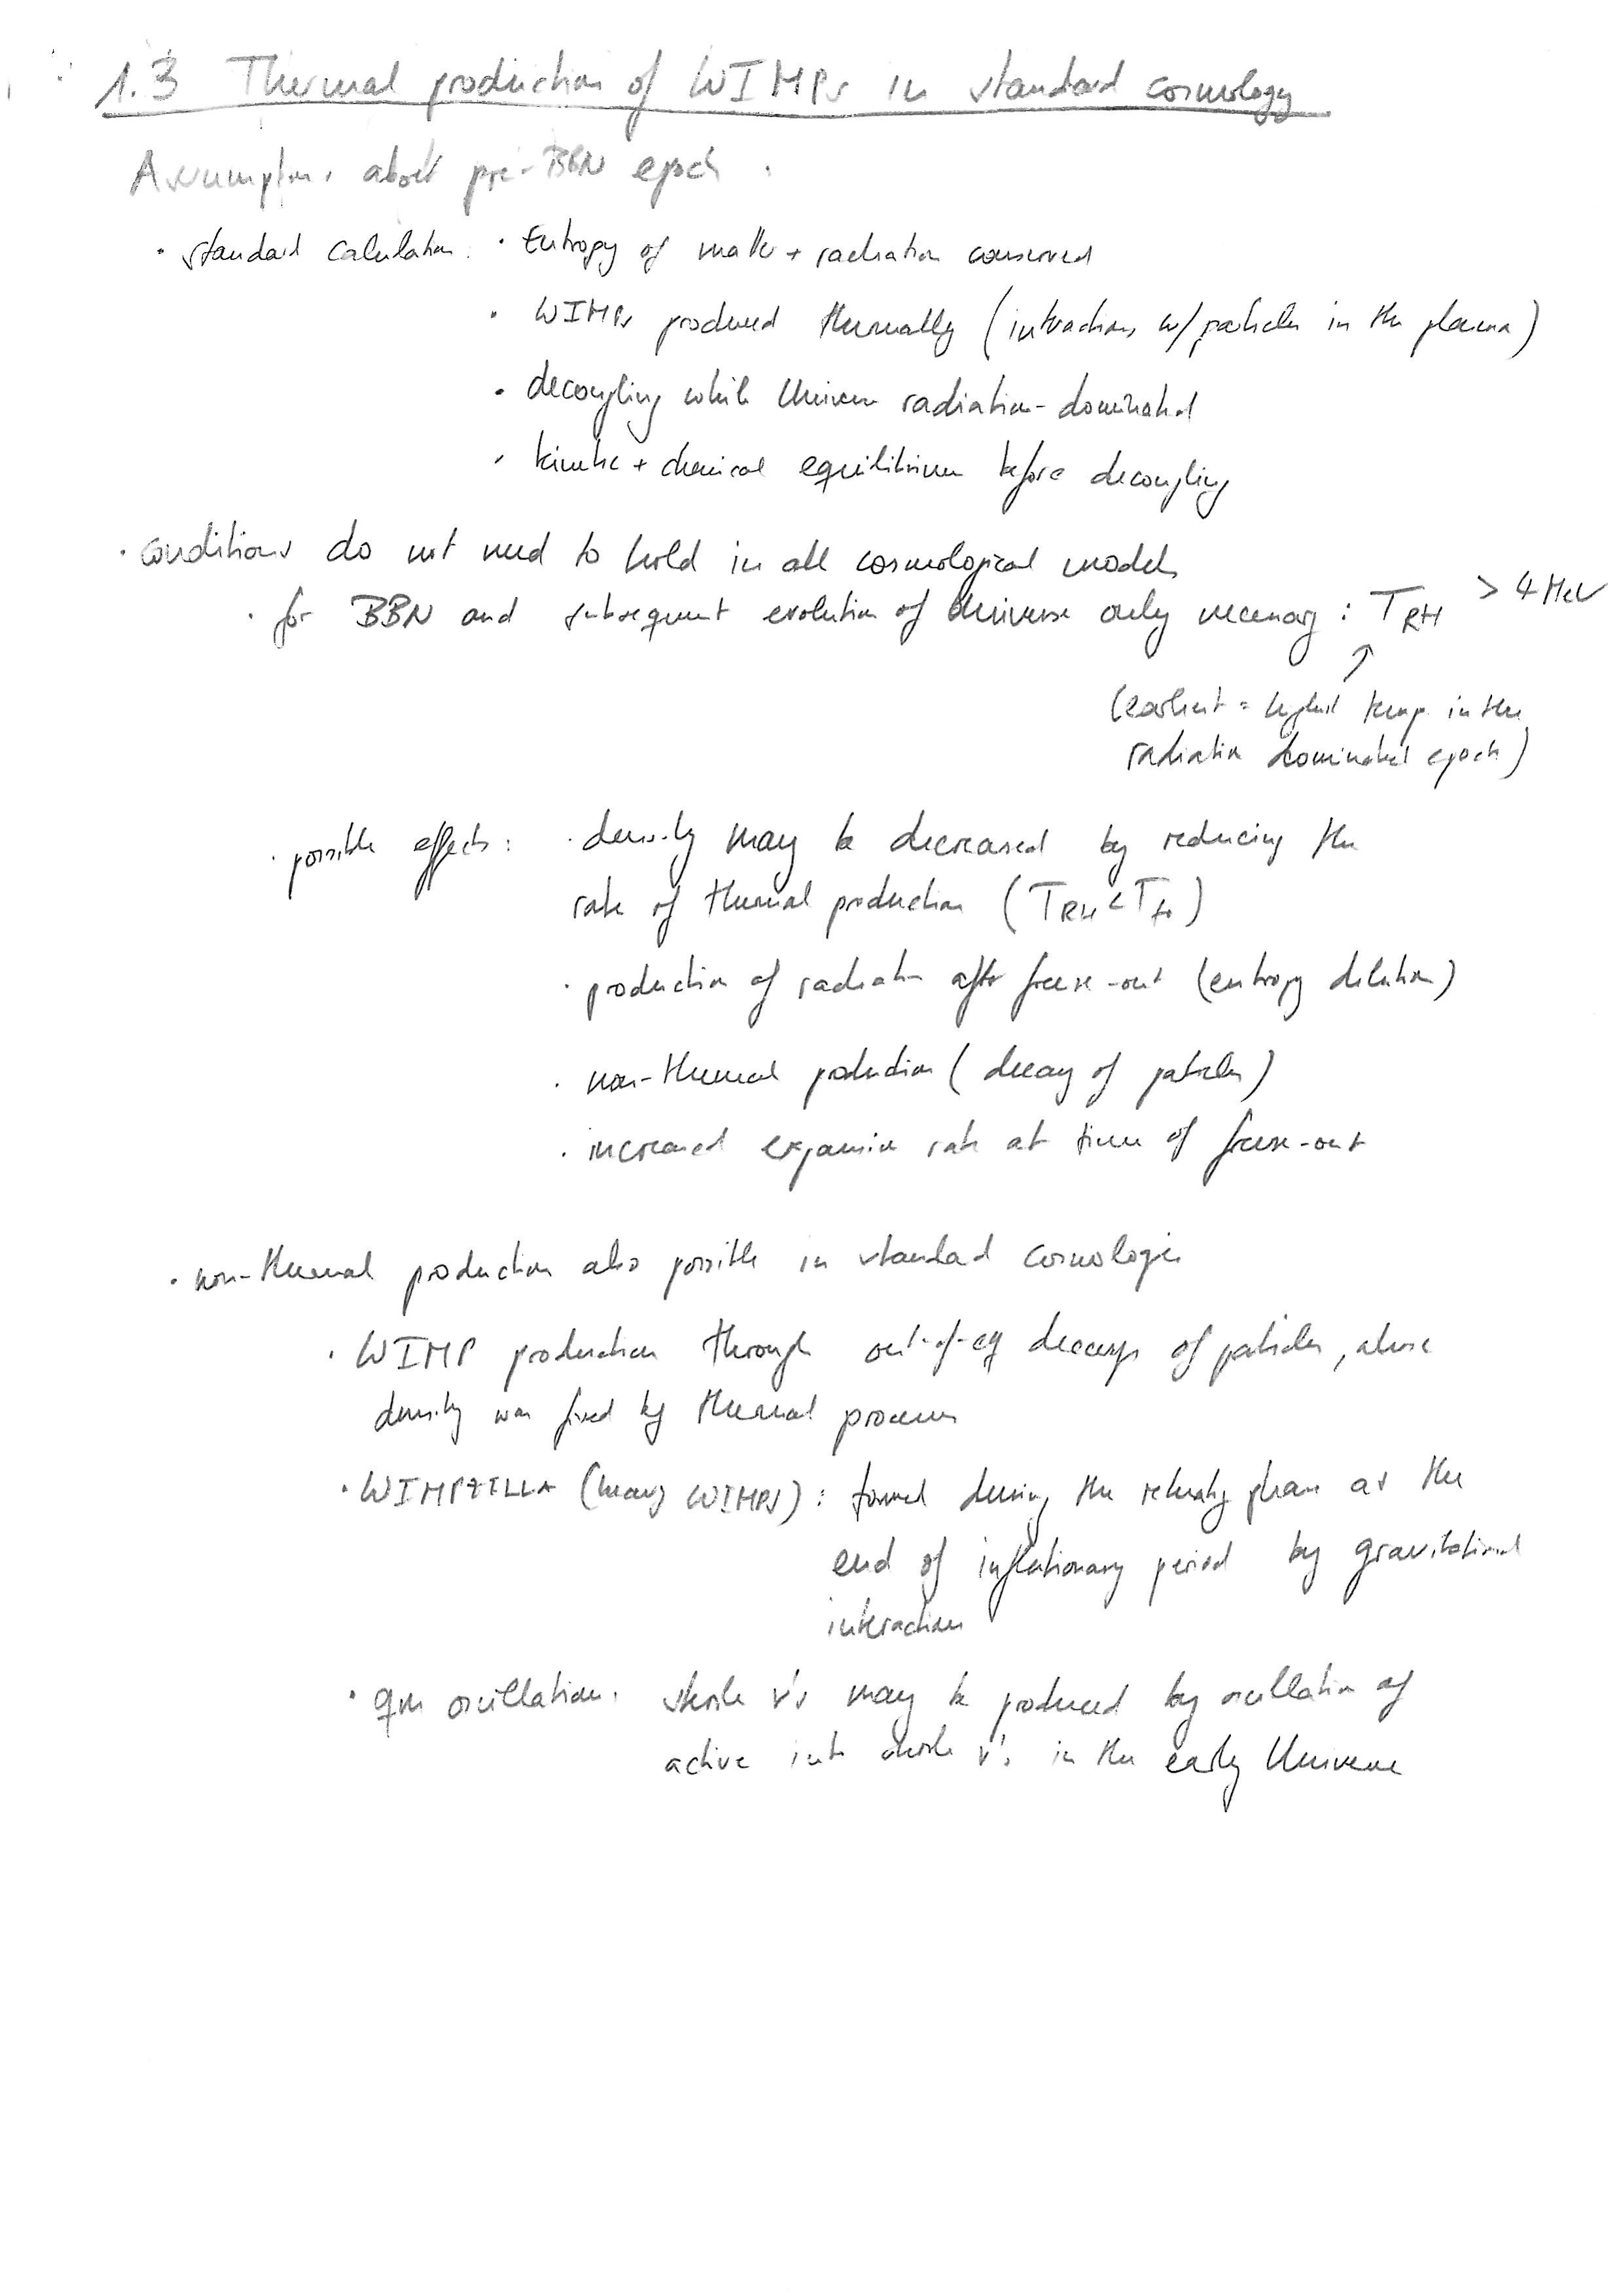 1.3 Thermal production of WIMPs in standard cosmology
Assumptions about pre-BBN epoch :
· standard calculation: · Entropy of matter + radiation conserved
· WIMPs produced thermally (interactions w/ particles in the plasma)
· decoupling while Universe radiation-dominated
· kinetic + chemical equilibrium before decoupling
· conditions do not need to hold in all cosmological models
· for BBN and subsequent evolution of Universe only necessary : T_RH > 4 MeV
↑
(earliest = highest temp. in the
radiation dominated epoch)
· possible effects : · density may be decreased by reducing the
rate of thermal production (T_RH < T_fo)
· production of radiation after freeze-out (entropy dilution)
· non-thermal production (decay of particles)
· increased expansion rate at time of freeze-out
· non-thermal production also possible in standard cosmologies
· WIMP production through out-of-eq decays of particles, whose
density was fixed by thermal processes
· WIMPZILLA (heavy WIMPs) : formed during the reheating phase at the
end of inflationary period by gravitational
interactions
· qm oscillation: sterile ν's may be produced by oscillation of
active into sterile ν's in the early Universe